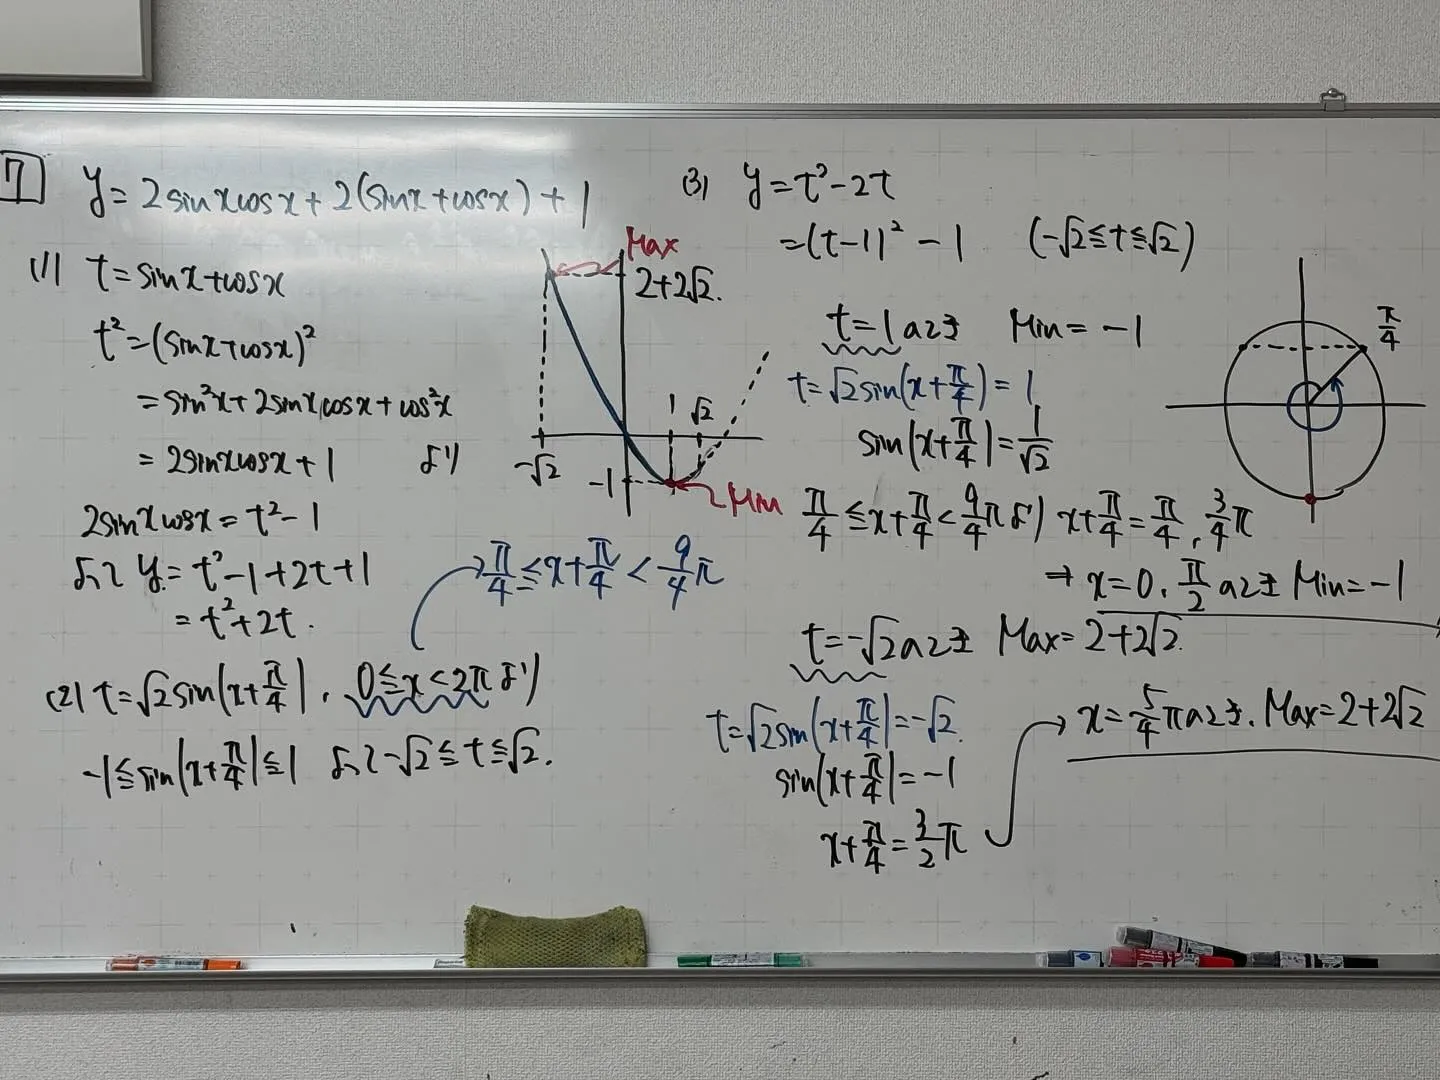 7 y=2sinxcosx+2(sinx+cosx)+1
(1) t=sinx+cosx
t²=(sinx+cosx)²
=sin²x+2sinxcosx+cos²x
=2sinxcosx+1 より
2sinxcosx=t²-1
よって y=t²-1+2t+1
=t²+2t.
(2) t=√2sin(x+π/4), 0≦x<2πより
π/4≦x+π/4<9/4π
-1≦sin(x+π/4)≦1 よって -√2≦t≦√2.
Max
2+2√2.
1 √2
-√2
-1
Min
(3) y=t²-2t
=(t-1)²-1 (-√2≦t≦√2)
t=1のとき Min=-1
t=√2sin(x+π/4)=1
sin(x+π/4)=1/√2
π/4≦x+π/4<9/4πより x+π/4=π/4, 3/4π
⇒ x=0, π/2のとき Min=-1
t=-√2のとき Max=2+2√2.
t=√2sin(x+π/4)=-√2.
sin(x+π/4)=-1
x+π/4=3/2π
x=5/4πのとき. Max=2+2√2
π/4